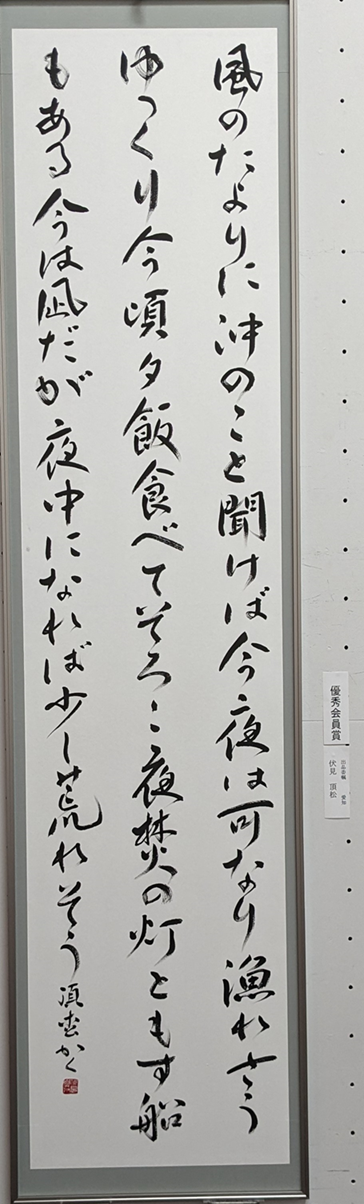 風のたよりに沖のこと聞けば今夜は可なり漁れさう
ゆっくり今頃夕飯食べてそろ〻夜焚の灯ともす船
もある今は凪だが夜中になれば少し荒れそう 頂雲かく
優秀会員賞
愛知
伏見 頂松